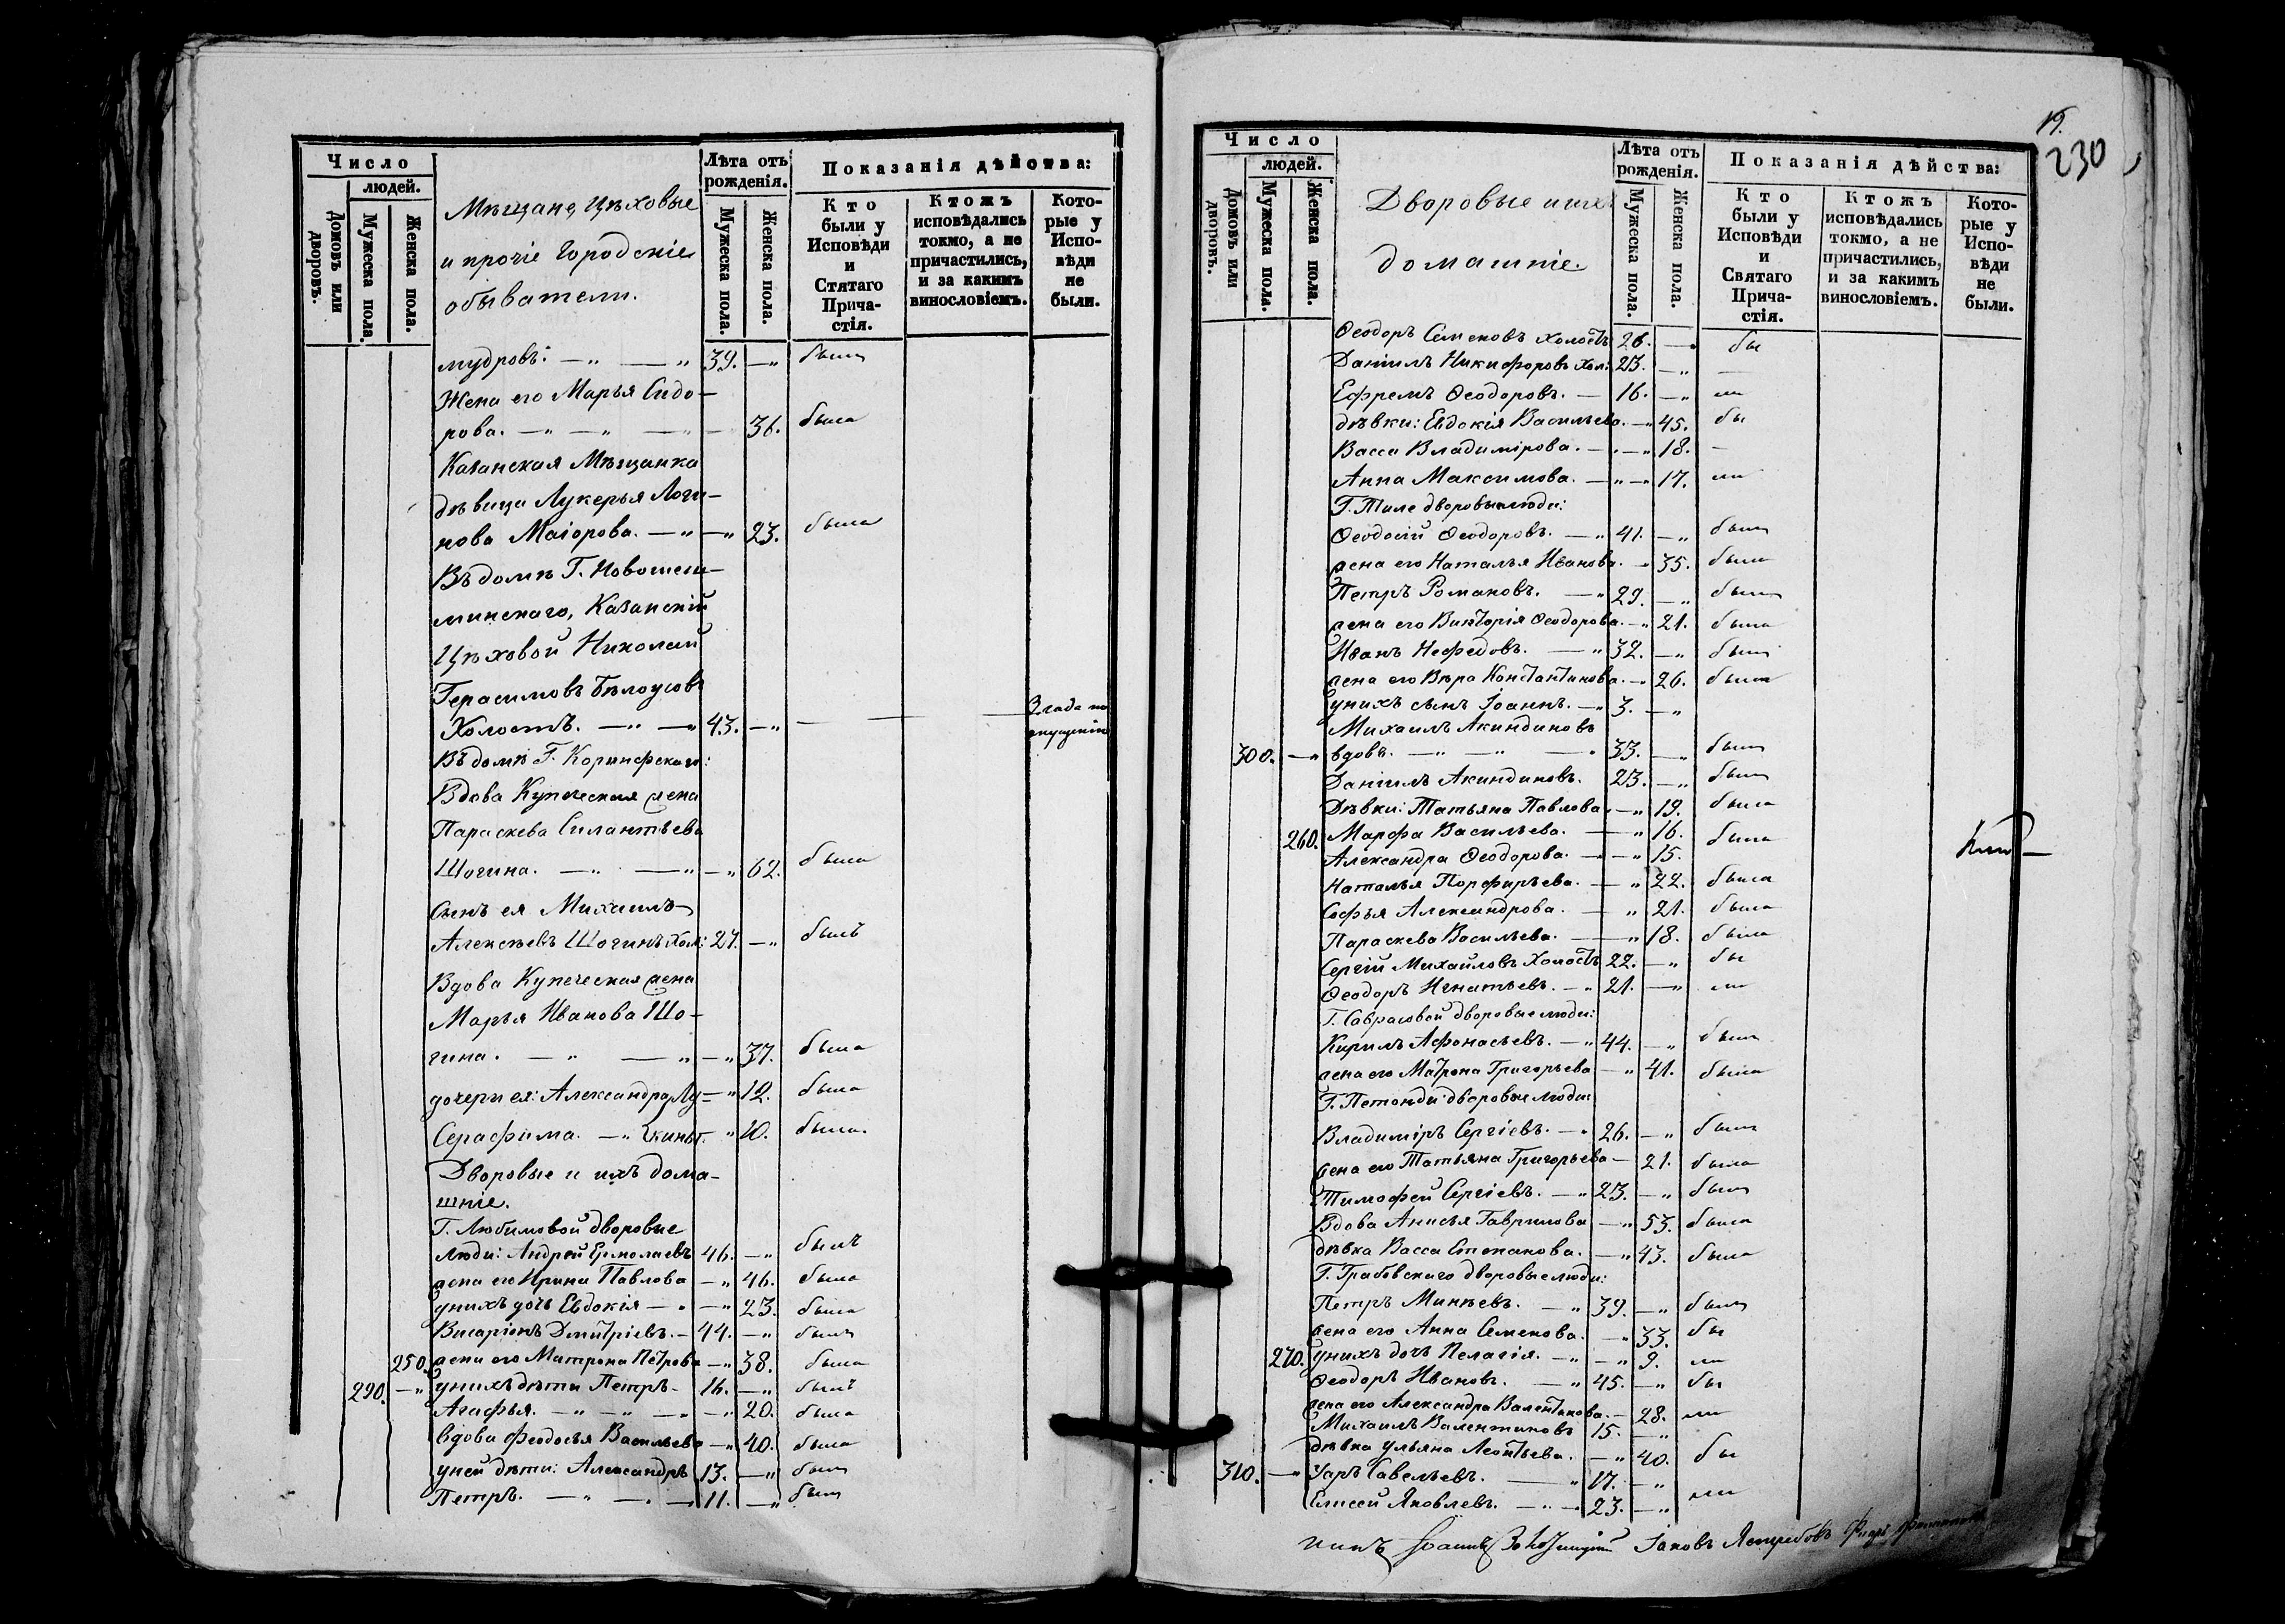 Число
людей.
Домовъ или дворовъ.
Мужеска пола.
Женска пола.
Мѣщане, Цѣховые
и прочіе Городскіе
обыватели.
Лѣта отъ рожденія.
Мужеска пола.
Женска пола.
Показанія дѣйства:
Кто были у Исповѣди и Стятаго Прича-стія.
Ктожъ исповѣдались токмо, а не причастились, и за какимъ винословіемъ.
Кото-рые у Испо-вѣди не были.
мудровъ. — „ — „ 39. — „ былъ
Жена его Марья Сидо-
рова. — „ — „ — „ — 36. была
Казанская Мѣщанка
дѣвица Лукерья Логи-
нова Маіорова. — „ — „ 23. была
Въ домѣ Г. Новошеш-
минскаго, Казанскій
Цѣховой Николай
Герасимовъ Бѣлоусовъ
Холостъ. — „ — „ 43. — „ — — — 2 года по
опущенію
Въ домѣ Г. Коринфскаго:
Вдова Купеческая жена
Параскева Силантьева
Шогина. — „ — „ — „ 62. была
Сынъ ея Михаилъ
Алексѣевъ Шогинъ Хол: 27. — „ былъ
Вдова Купеческая жена
Марья Иванова Шо-
гина. — „ — „ — „ 37. была
дочери ея: Александра, Лу- — „ 12. была
Серафима. — „ 10. была.
Дворовые и ихъ дома-
шніе.
Г. Любимовой дворовые
люди: Андрей Ермолаевъ 46. — „ былъ
жена его Ирина Павлова — „ 46. была
у нихъ дочь Евдокія — „ — „ 23. была
Висаріонъ Дмитріевъ. — 44. — „ былъ
250. жена его Матрона Петрова — „ 38. была
290. — „ у нихъ дѣти Петръ — 16. — „ былъ
Агафья. — „ — „ — „ — „ 20. была
вдова Феодосья Васильева — „ 40. была
у ней дѣти: Александръ 13. — „ былъ
Петръ. — „ — „ — 11. — „ былъ
19.
230
Число
людей.
Домовъ или дворовъ.
Мужеска пола.
Женска пола.
Дворовые и ихъ
домашніе.
Лѣта отъ рожденія.
Мужеска пола.
Женска пола.
Показанія дѣйства:
Кто были у Исповѣди и Святаго Прича-стія.
Ктожъ исповѣдались токмо, а не причастились, и за какимъ винословіемъ.
Кото-рые у Испо-вѣди не были.
Ѳеодоръ Семеновъ холостъ 26. — бы
Даніилъ Никифоровъ хол: 23. — „ —
Ефремъ Ѳеодоровъ. — 16. — „ ли
дѣвки: Евдокія Васильева. — „ 45. бы
Васса Владимірова. — „ — „ 18. —
Анна Максимова. — „ — „ 17. ли
Г. Тиле дворовые люди:
Ѳеодосій Ѳеодоровъ. — „ 41. — „ былъ
жена его Наталья Иванова. — „ 35. была
Петръ Романовъ. — „ 29. — „ былъ
жена его Викторія Ѳеодорова. — „ 21. была
Иванъ Нефедовъ. — „ 32. — „ былъ
жена его Вѣра Константинова. — „ 26. была
у нихъ сынъ Іоаннъ. — „ 3. — „
Михаилъ Акиндиновъ
300. — „ вдовъ. — „ — „ — „ 33. — „ былъ
Даніилъ Акиндиновъ. 23. — „ былъ
Дѣвки: Татьяна Павлова. — „ 19. была
260. Марфа Васильева. — „ 16. была
Александра Ѳеодорова. — — „ 15.
Наталья Порфирьева. — „ 22. была
Софья Александрова. — „ 21. была
Параскева Васильева. — „ 18. была
Сергій Михайловъ Холостъ 22. — „ бы
Ѳеодоръ Игнатьевъ. — „ 21. — „ ли
Г. Саврасовой дворовые люди:
Кирилъ Афонасьевъ. — „ 44. — „ былъ
жена его Матрона Григорьева — „ 41. была
Г. Петонди дворовые люди:
Владиміръ Сергіевъ. — „ 26. — „ былъ
жена его Татьяна Григорьева — 21. была
Тимофей Сергіевъ. — „ 23. — „ былъ
Вдова Анисья Гаврилова — „ 53. была
дѣвка Васса Степанова. — „ 43. была
Г. Грабовскаго дворовые люди:
Петръ Минѣевъ. — „ 39. — „ былъ
жена его Анна Семенова. — „ 33. бы
270. у нихъ дочь Пелагія. — „ — „ 9. ли
Ѳеодоръ Ивановъ. — „ 45. — „ бы
жена его Александра Валентинова. — 28. ли
Михаилъ Валентиновъ 15. — „
дѣвка Ульяна Леонтьева. — „ 40. бы
310. — „ Уаръ Савельевъ. — „ 17. — „
Елисей Яковлевъ. — „ — 23. — „ ли
Іоаннъ Іаковъ Ястребовъ